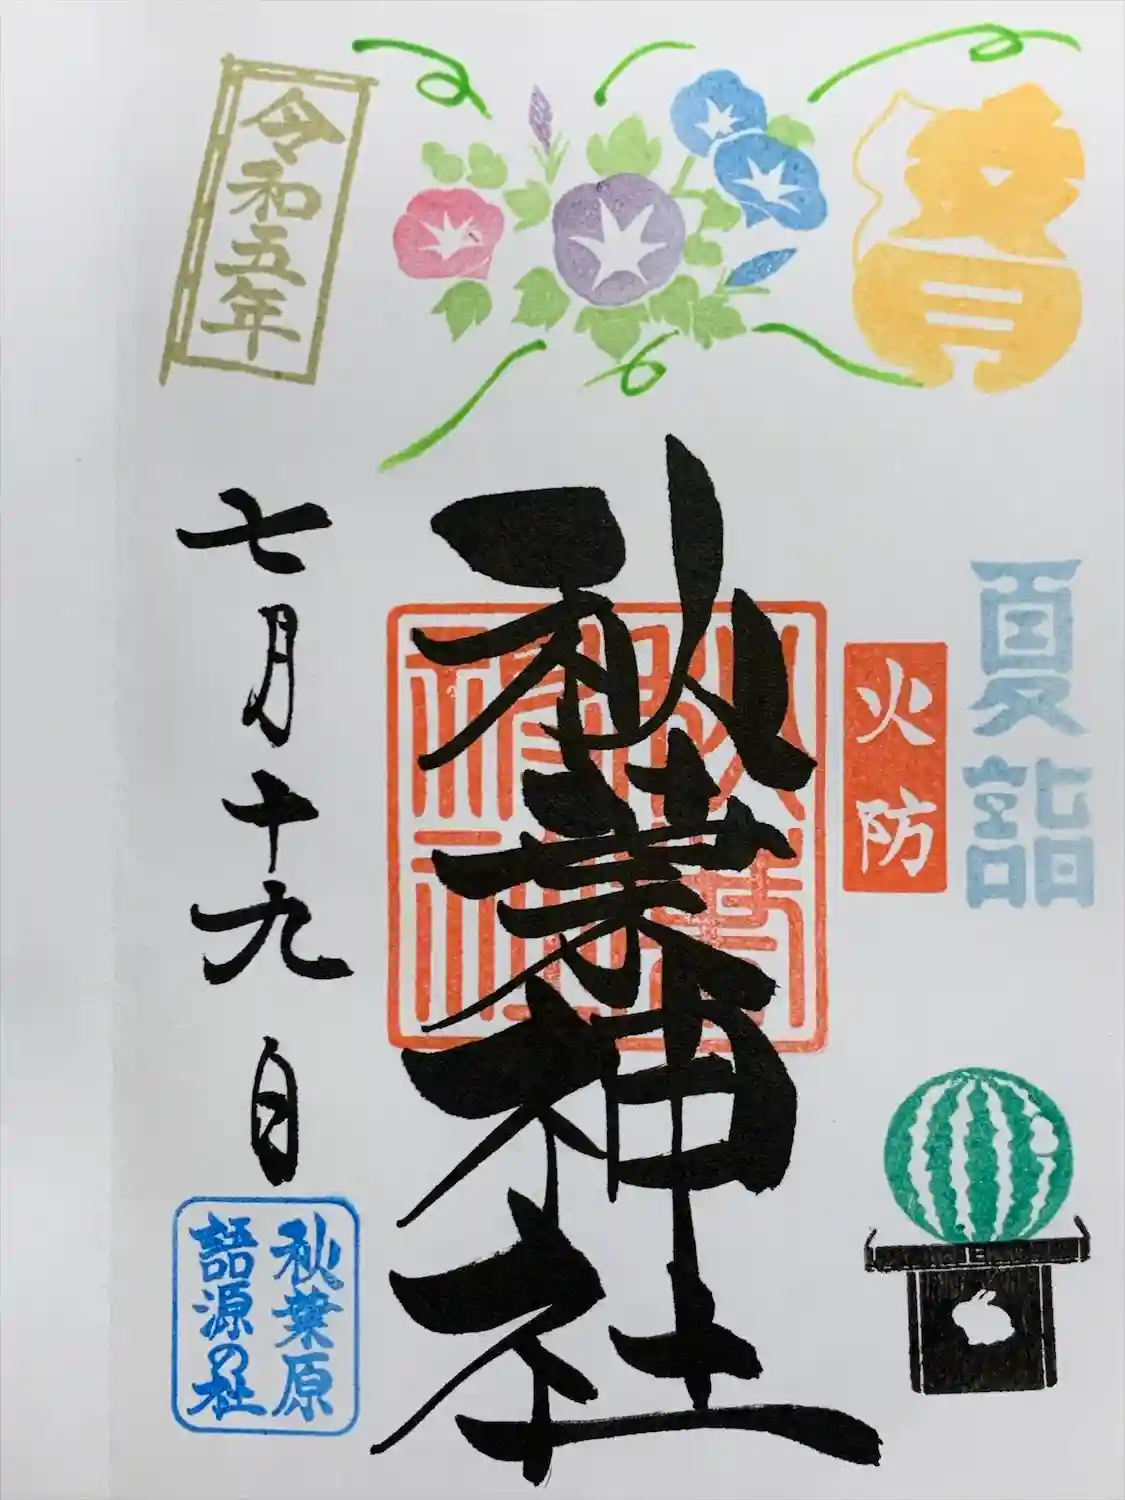 夏詣
火防
秋葉神社
令和五年
七月十九日
秋葉原
語源の社